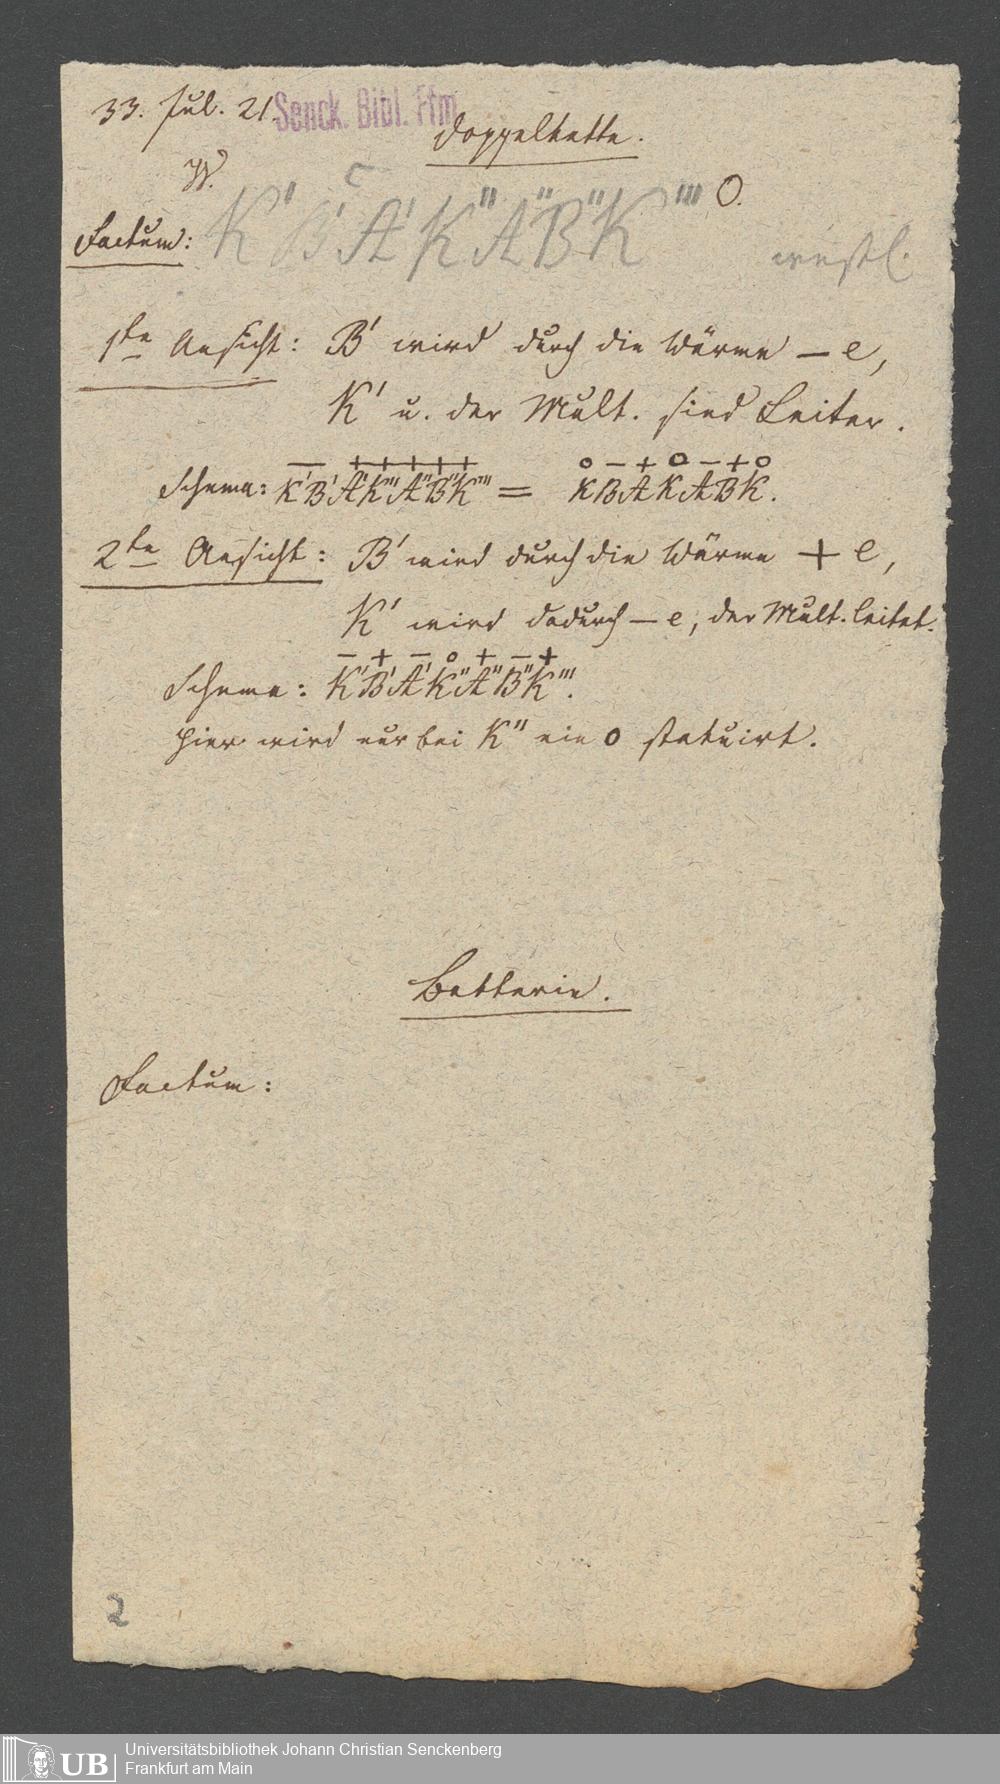 33. Jul. 21.
Senck. Bibl. Ffm
Doppelkette.
W.
O.
Factum: K' B' A' K'' A'' B'' K'''
westl.
1te Ansicht: B' wird durch die Wärme – e,
K' u. der Mult. sind Leiter.
– + + + + + o – + o – + o
Schema: K'B'A'K'''A''B''K''' = KBAKABK.
2te Ansicht: B' wird durch die Wärme + e,
K' wird dadurch – e, der Mult. leitet.
– + – o + – +
Schema: K'B'A'K''A''B''K'''.
hier wird nur bei K'' ein o statuirt.
Batterie.
Factum:
2
UB
Universitätsbibliothek Johann Christian Senckenberg
Frankfurt am Main